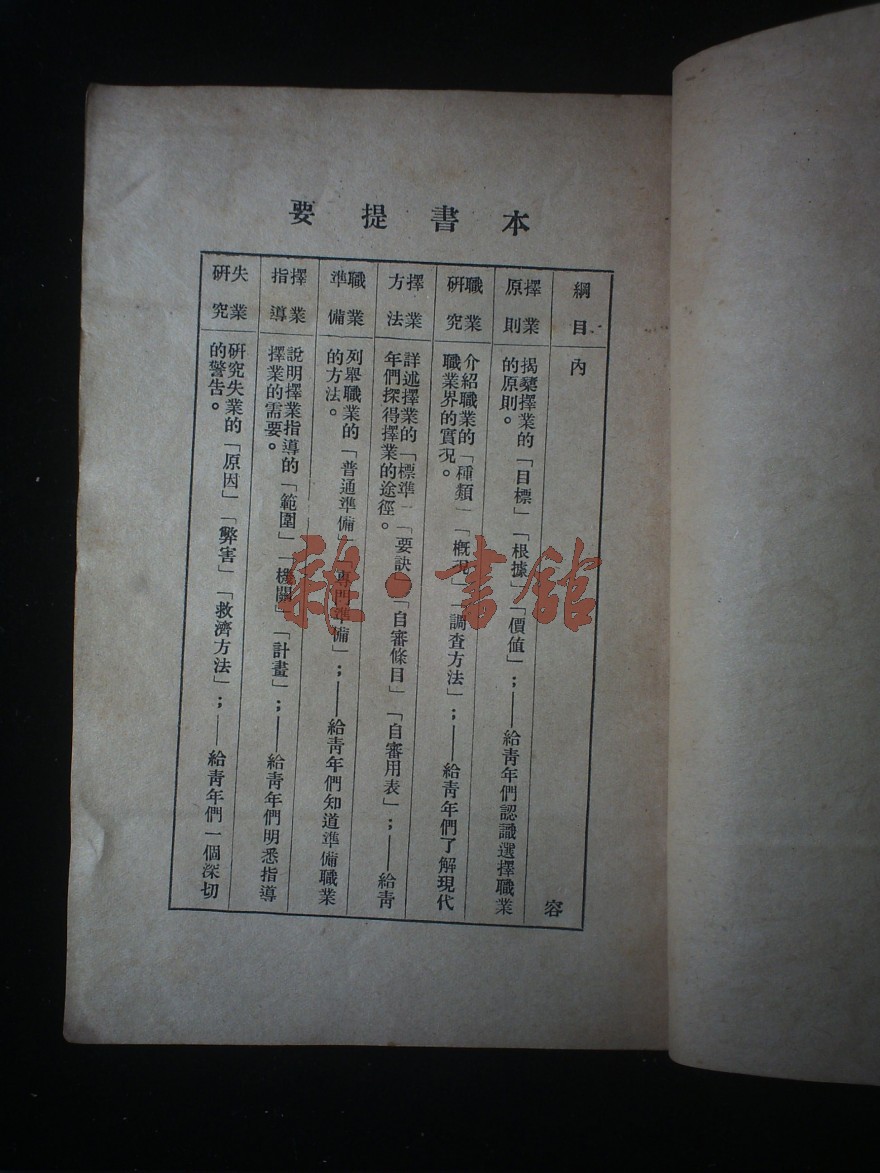 本書提要
綱目
內容
擇業原則
揭櫫擇業的「目標」「根據」「價值」；——給青年們認識選擇職業
的原則。
職業研究
介紹職業的「種類」「概況」「調查方法」；——給青年們了解現代
職業界的實況。
擇業方法
詳述擇業的「標準」「要訣」「自審條目」「自審用表」；——給青
年們探得擇業的途徑。
職業準備
列舉職業的「普通準備」「專門準備」；——給青年們知道準備職業
的方法。
擇業指導
說明擇業指導的「範圍」「機關」「計畫」；——給青年們明悉指導
擇業的需要。
失業研究
研究失業的「原因」「弊害」「救濟方法」；——給青年們一個深切
的警告。
雜·書館